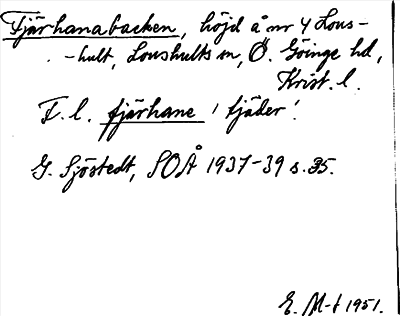 Tjärhanabacken, höjd å nr 4 Lous-
-hult, Loushults sn, Ö. Göinge hd,
Krist. l.
F. l. tjärhane 'tjäder'.
G. Sjöstedt, SOÅ 1937-39 s. 35.
E. M-t 1951.